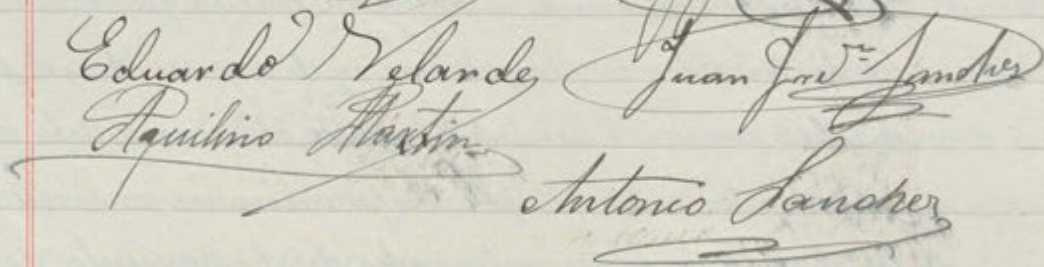 Eduardo Velarde Juan Fndez Sanchez
Aquilino Martin
Antonio Sanchez